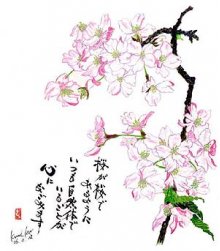 桜が桜で
あるように
いつも自然体で
いることが
心に